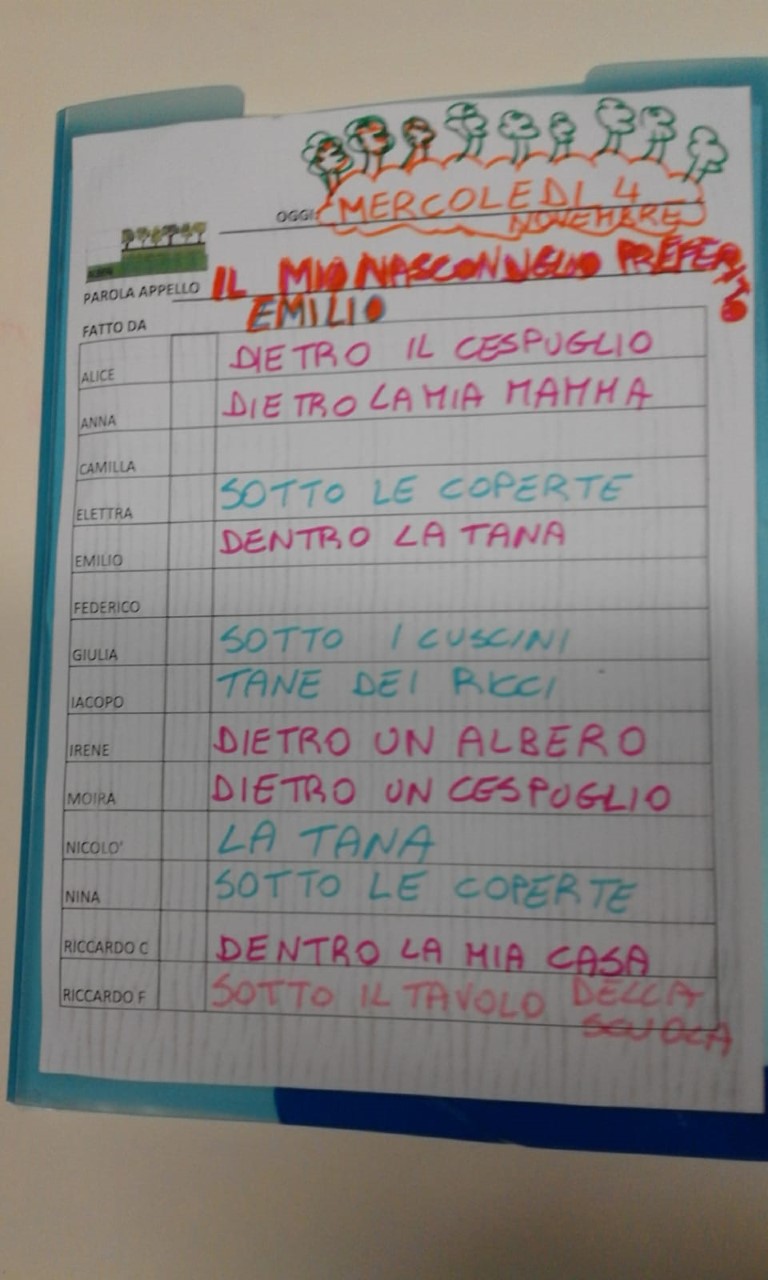 OGGI: MERCOLEDI 4
NOVEMBRE
PAROLA APPELLO IL MIO NASCONDIGLIO PREFERITO
FATTO DA EMILIO
ALICE DIETRO IL CESPUGLIO
ANNA DIETRO LA MIA MAMMA
CAMILLA
ELETTRA SOTTO LE COPERTE
EMILIO DENTRO LA TANA
FEDERICO
GIULIA SOTTO I CUSCINI
IACOPO TANE DEI RICCI
IRENE DIETRO UN ALBERO
MOIRA DIETRO UN CESPUGLIO
NICOLO' LA TANA
NINA SOTTO LE COPERTE
RICCARDO C DENTRO LA MIA CASA
RICCARDO F SOTTO IL TAVOLO DELLA
SCUOLA